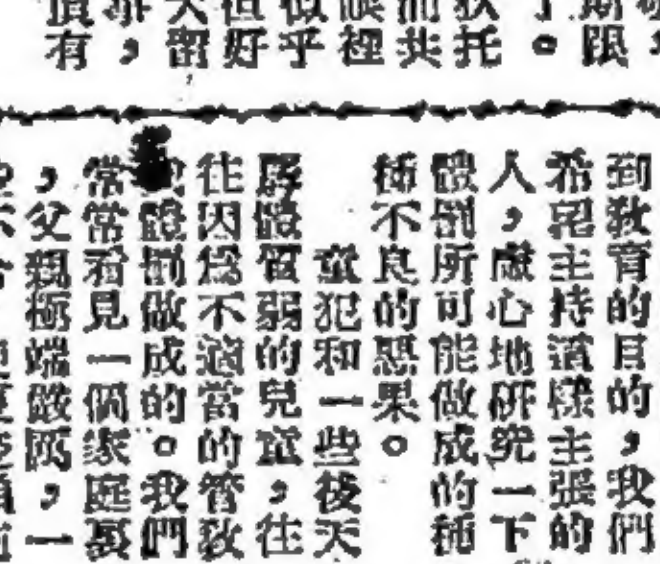 斯跟
了。
狄托
而共
眼裡
似乎
但好
大留
非，
頂有
到教育的目的，我們
希望主持這樣主張的
人，虛心地研究一下
體罰所可能做成的種
種不良的惡果。
童犯和一些後天
孱體質弱的兒童，往
往因為不適當的管教
體罰做成的。我們
常常看見一個家庭裏
，父親極端嚴厲，一